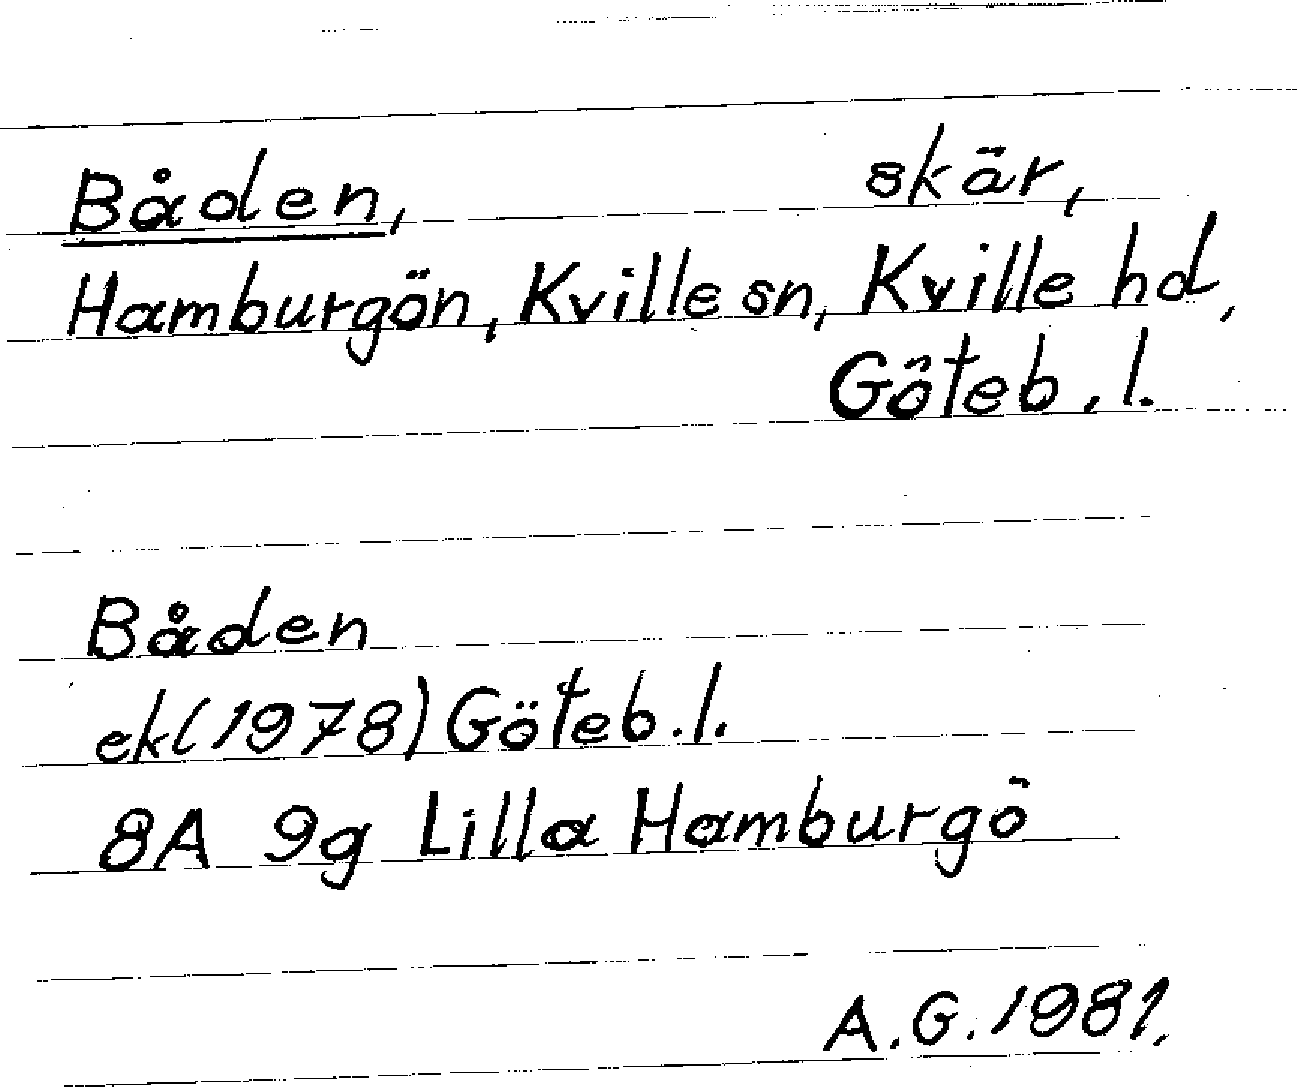 Båden, skär,
Hamburgön, Kville sn, Kville hd,
Göteb. l.
Båden
ek (1978) Göteb. l.
8A 9g Lilla Hamburgö
A.G. 1981.